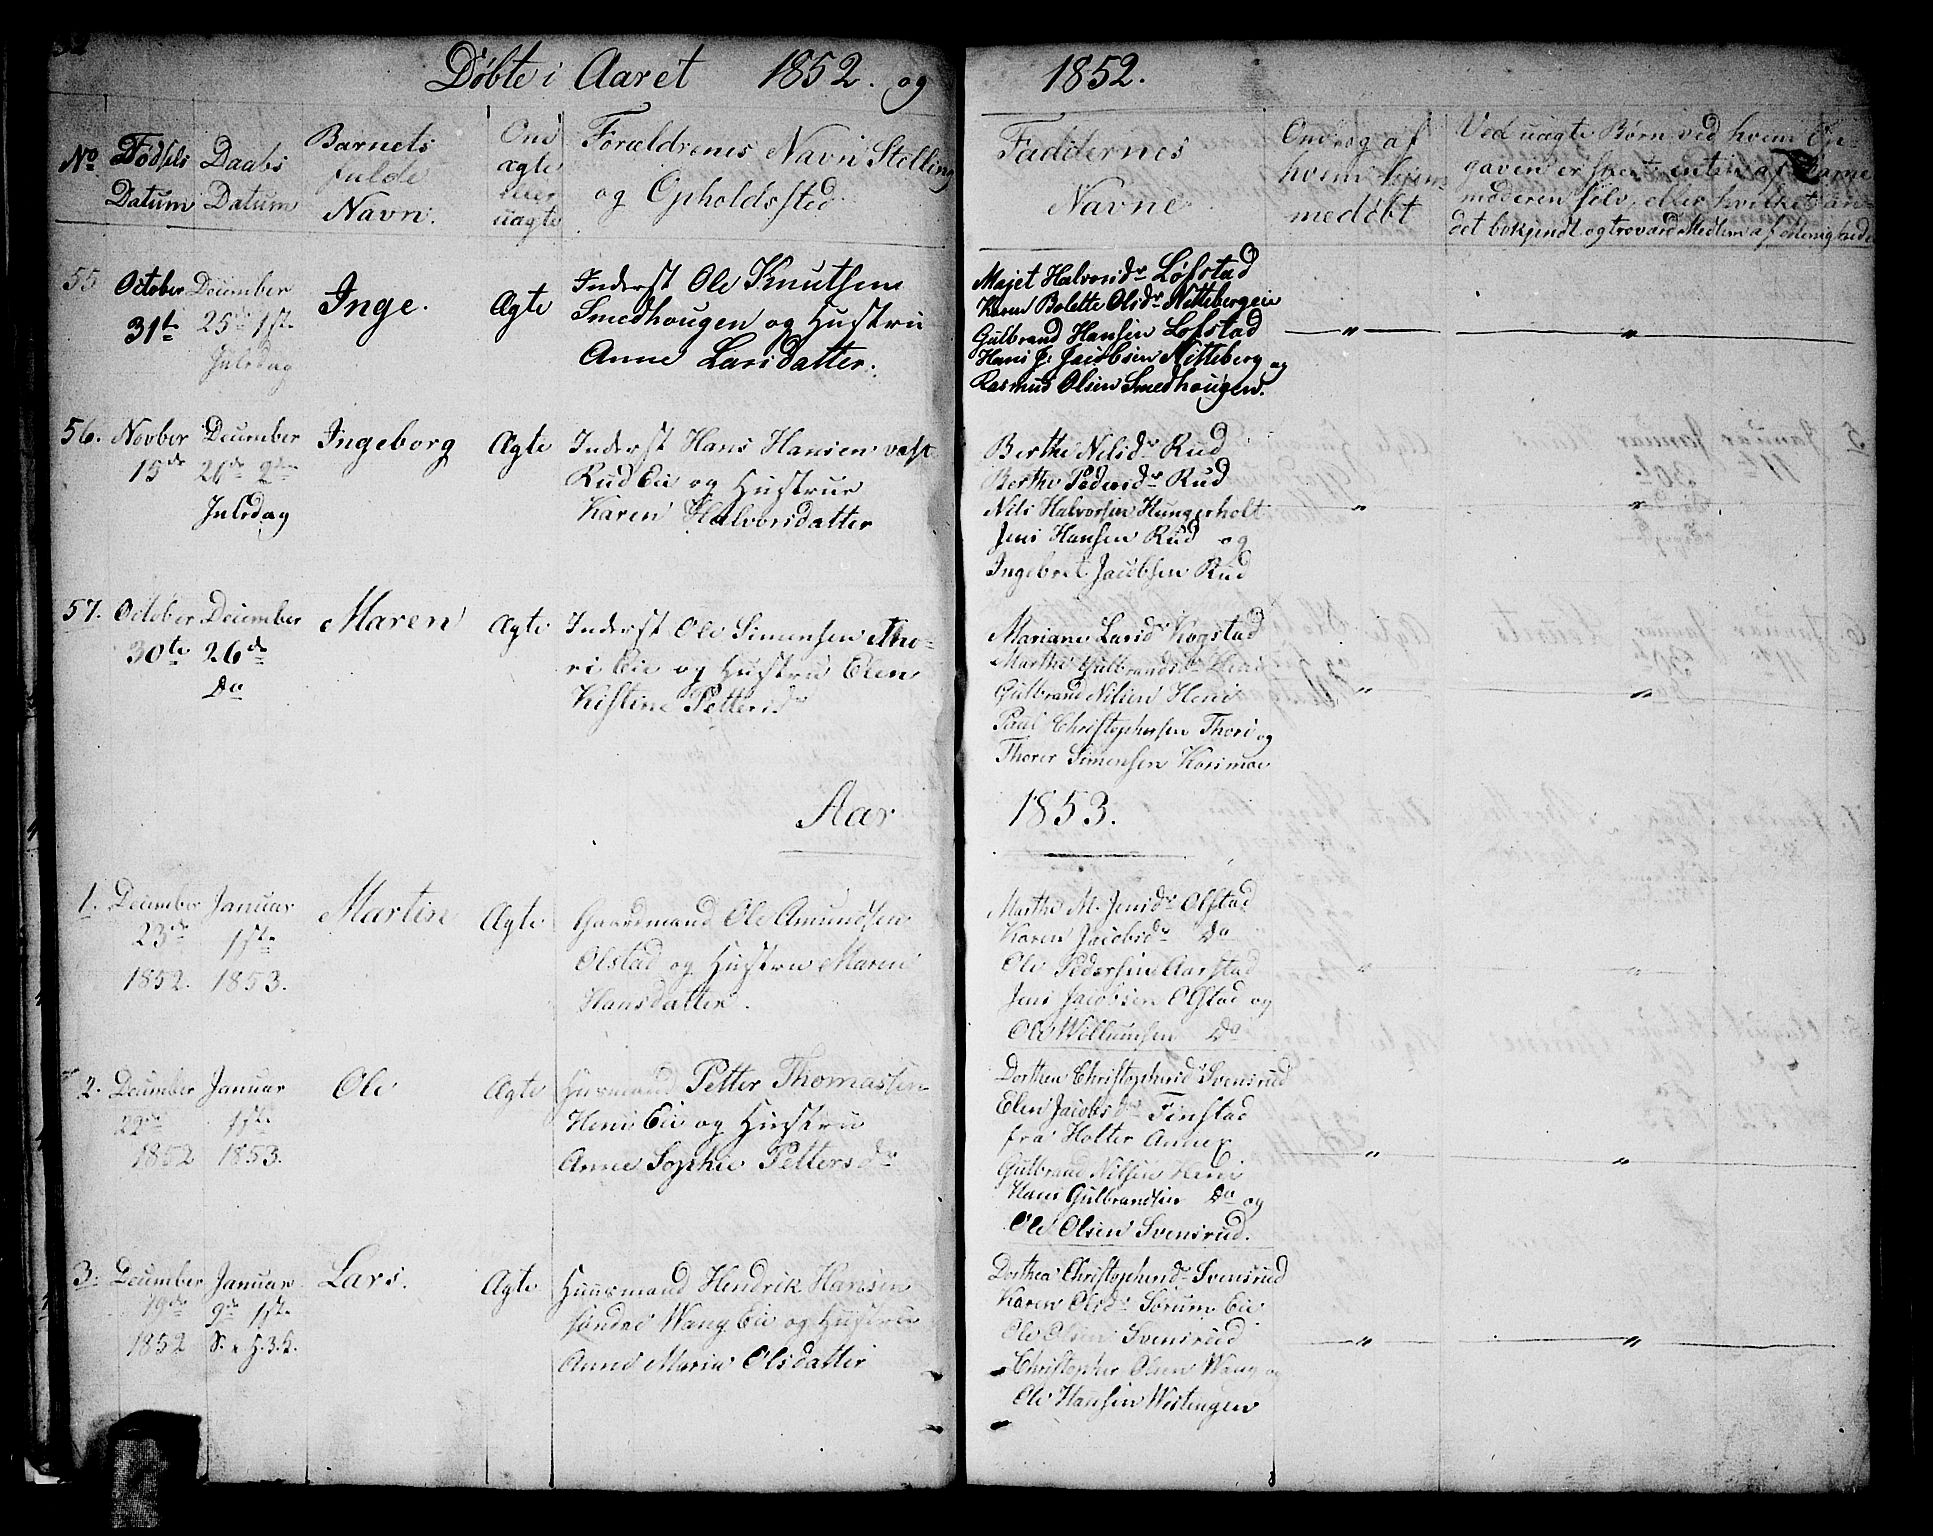 Döbte i Aaret 1852. og 1852.
No Födsels Datum
Daabs Datum
Barnets fulde Navn.
Om ægte eller uægte
Forældrenes Navn Stelling og Opholdssted
Faddernes Navne
Ombrog af hvem hjemmedøbt
Ved uægte Børn, ved hvem Op-
gaven er skeet enten af Barne
moderen selv, eller hvilket an-
det bekjendt og troværd Medlem af Menighede
55 October 31te
December 25de 1ste Juledag
Inge.
Ægte
Inderst Ole Knutsen
Smedhougen og Hustru
Anne Larsdatter.
Majet Halvorsdr Löfstad
Karen Bolette Olsdr Nitteberg eie
Gulbrand Hansen Lofstad
Hans J: Jacobsen Nitteberg og
Rasmus Olsen Smedhougen.
56. Novber 15de
December 26de 2den Juledag
Ingeborg
Ægte
Inderst Hans Hansen vest
Rud Eie og Hustrue
Karen Halvorsdatter
Berthe Nelsdr Rud
Berthe Pedersdr Rud
Nils Halvorsen Hungerholt
Jens Hansen Rud og
Ingebret Jacobsen Rud
57. October 30te
December 26de Do
Maren
Ægte
Inderst Ole Simensen Tho-
ri Eie og Hustru Elen
Kistine Pettersdr
Mariane Larsdr Kogstad
Marthe Gulbrandsdr Heni
Gulbrand Nilsen Heni
Paul Christophersen Thori og
Thorer Simensen Korsmoe
Aar 1853.
1. December 23de 1852.
Januar 1ste 1853.
Martin
Ægte
Gaardmand Ole Amundsen
Olstad og Hustru Maren
Hansdatter.
Marthe M. Jensdr Olstad
Karen Jacobsdr Do
Ole Pedersen Aarstad
Jens Jacobsen Olstad og
Ole Willumsen Do
2. December 22de 1852
Januar 1ste 1853.
Ole
Ægte
Husmand Petter Thomassen
Heni Eie og Hustru
Anne Sophie Pettersdr
Dorthea Christophersdr Svensrud
Elen Jacobsdr Finstad
fra Holter Annex
Gulbrand Nilsen Heni
Hans Gulbrandsen Do og
Ole Olsen Svensrud.
3. December 19de 1852
Januar 9de 1ste S. e H. 3 K.
Lars.
Ægte
Huusmand Hendrik Hansen
söndre Wang Eie og Hustru
Anne Maria Olsdatter
Dorthea Christophersdr Svensrud
Karen Olsdr Sörum Eie
Ole Olsen Svensrud
Christopher Olsen Wang og
Ole Hansen Westengen